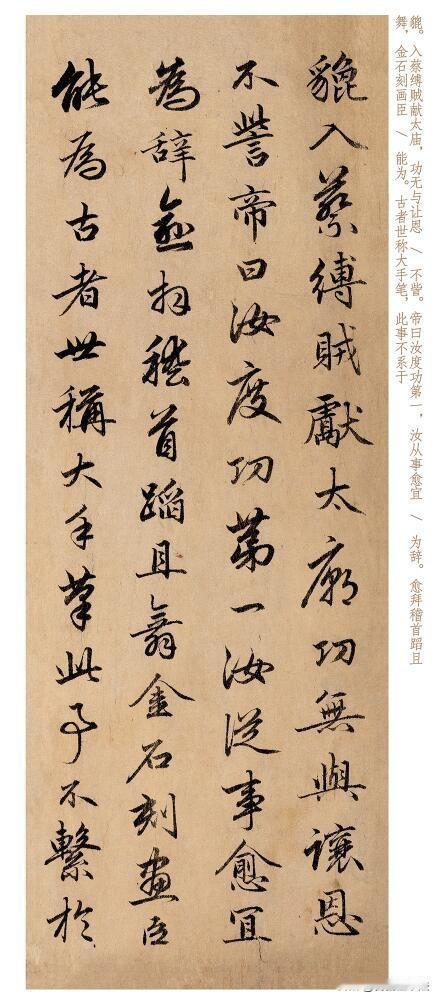 貔。入蔡缚贼献太庙，功无与让恩 / 不訾。帝曰汝度功第一，汝从事愈宜 / 为辞。愈拜稽首蹈且
舞，金石刻画臣 / 能为。古者世称大手笔，此事不系于
貔入蔡縛賊獻太廟功無與讓恩
不訾帝曰汝度功第一汝從事愈宜
為辭愈拜稽首蹈且舞金石刻畫臣
能為古者世稱大手筆此事不繫於